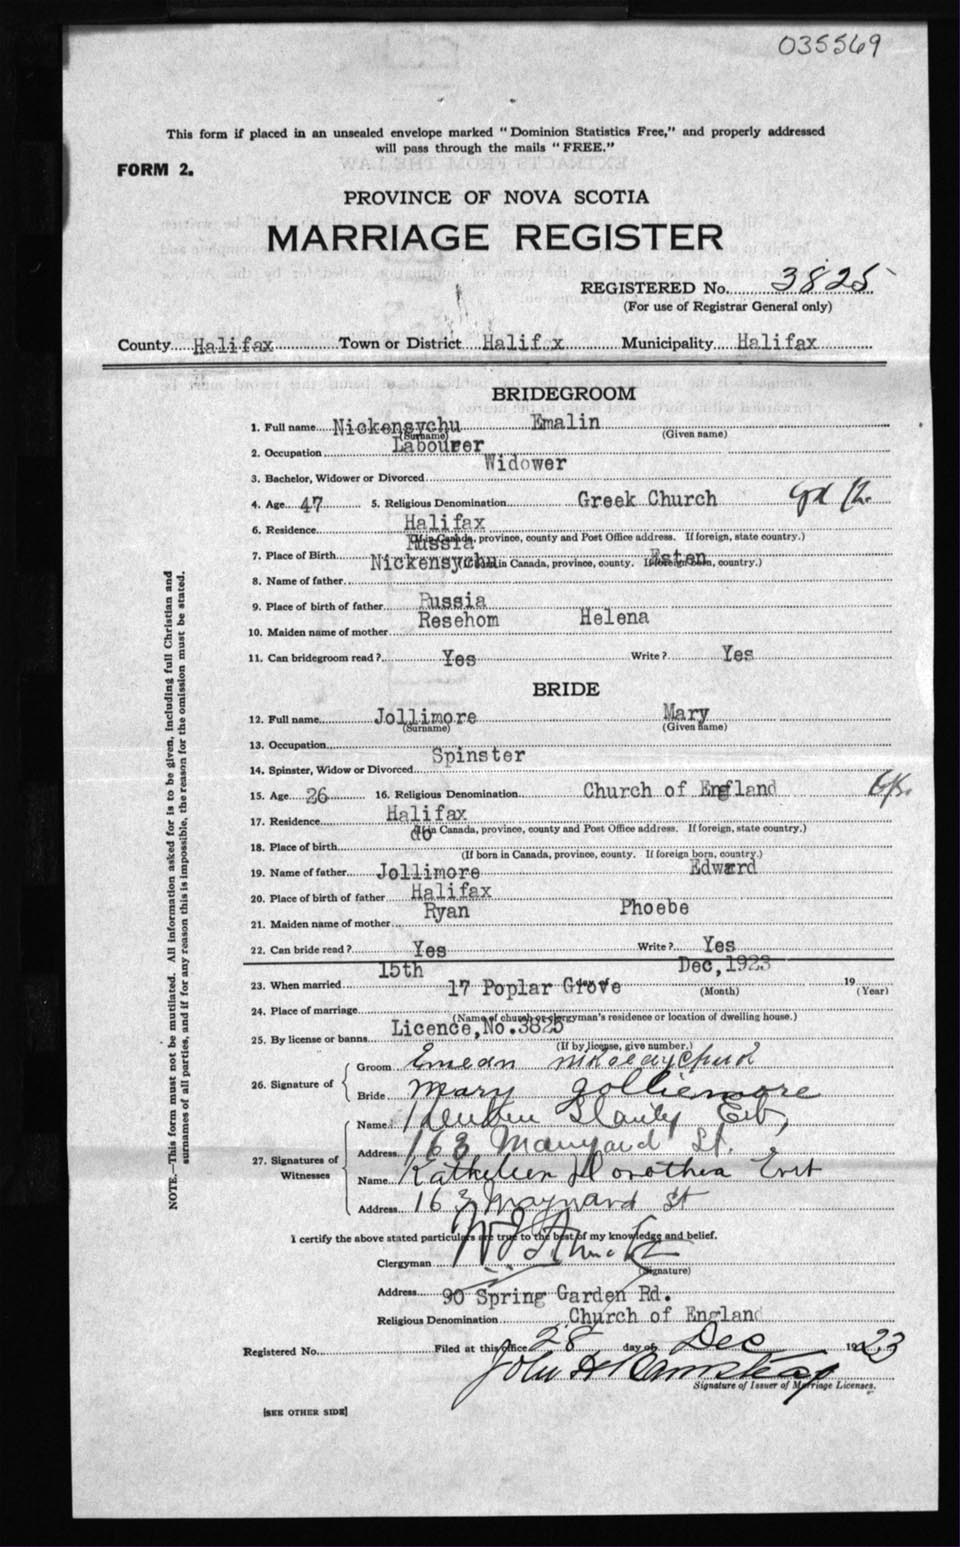 035569
This form if placed in an unsealed envelope marked "Dominion Statistics Free," and properly addressed
will pass through the mails "FREE."
FORM 2.
PROVINCE OF NOVA SCOTIA
MARRIAGE REGISTER
REGISTERED No. 3825
(For use of Registrar General only)
County Halifax Town or District Halifax Municipality Halifax
BRIDEGROOM
1. Full name Nickensychu Emalin
(Surname) (Given name)
2. Occupation Labourer
3. Bachelor, Widower or Divorced Widower
4. Age 47 5. Religious Denomination Greek Church
6. Residence Halifax
(If in Canada, province, county and Post Office address. If foreign, state country.)
7. Place of Birth Russia
(If born in Canada, province, county. If foreign born, country.)
8. Name of father Nickensychu Esten
9. Place of birth of father Russia
10. Maiden name of mother Resehom Helena
11. Can bridegroom read? Yes Write? Yes
BRIDE
12. Full name Jollimore Mary
(Surname) (Given name)
13. Occupation
14. Spinster, Widow or Divorced Spinster
15. Age 26 16. Religious Denomination Church of England
17. Residence Halifax
(If in Canada, province, county and Post Office address. If foreign, state country.)
18. Place of birth do
(If born in Canada, province, county. If foreign born, country.)
19. Name of father Jollimore Edward
20. Place of birth of father Halifax
21. Maiden name of mother Ryan Phoebe
22. Can bride read? Yes Write? Yes
23. When married 15th day of Dec, 1923 19
(Month) (Year)
24. Place of marriage 17 Poplar Grove
(Name of church or clergyman's residence or location of dwelling house.)
25. By license or banns Licence, No. 3825
(If by license, give number.)
26. Signature of
Groom Emean
Bride Mary Jolliemore
27. Signatures of Witnesses
Name
Address 163 St.
Name Kathleen Dorothea
Address 163 Maynard St
I certify the above stated particulars are true to the best of my knowledge and belief.
Clergyman
(Signature)
Address 90 Spring Garden Rd.
Religious Denomination Church of England
Registered No. Filed at this office 28 day of Dec 1923
John H
Signature of Issuer of Marriage Licenses.
[SEE OTHER SIDE]
NOTE.—This form must not be mutilated. All information asked for is to be given, including full Christian and
surnames of all parties, and if for any reason this is impossible, the reason for the omission must be stated.